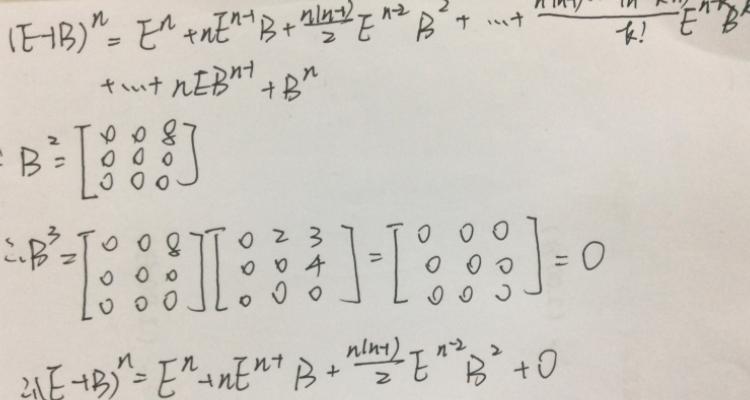 (E+B)ⁿ = Eⁿ + nEⁿ⁻¹B + n(n-1)/2 Eⁿ⁻² B² + ... + /k! Eⁿ⁻ᵏBᵏ
+ ... + nEBⁿ⁻¹ + Bⁿ
: B² = [0 0 8; 0 0 0; 0 0 0]
∴ B³ = [0 0 8; 0 0 0; 0 0 0] [0 2 3; 0 0 4; 0 0 0] = [0 0 0; 0 0 0; 0 0 0] = 0
∴ (E+B)ⁿ = Eⁿ + nEⁿ⁻¹ B + n(n-1)/2 Eⁿ⁻² B² + 0